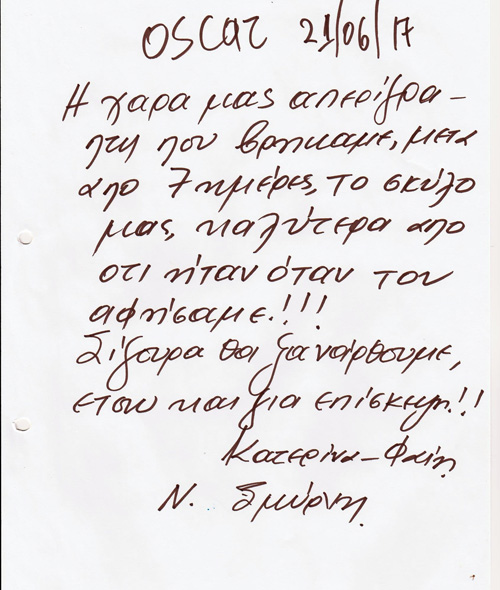 OSCAR 21/06/17
Η χαρα μας απεριγρα-
πτη που βρηκαμε, μετα
απο 7 ημέρες, το σκύλο
μας, καλύτερα απο
οτι ήταν όταν τον
αφησαμε.!!!
Σίγουρα θα ξαναρθουμε,
ετσω και για επίσκεψη.!!
Κατερίνα-Φαίη
Ν. Σμύρνη